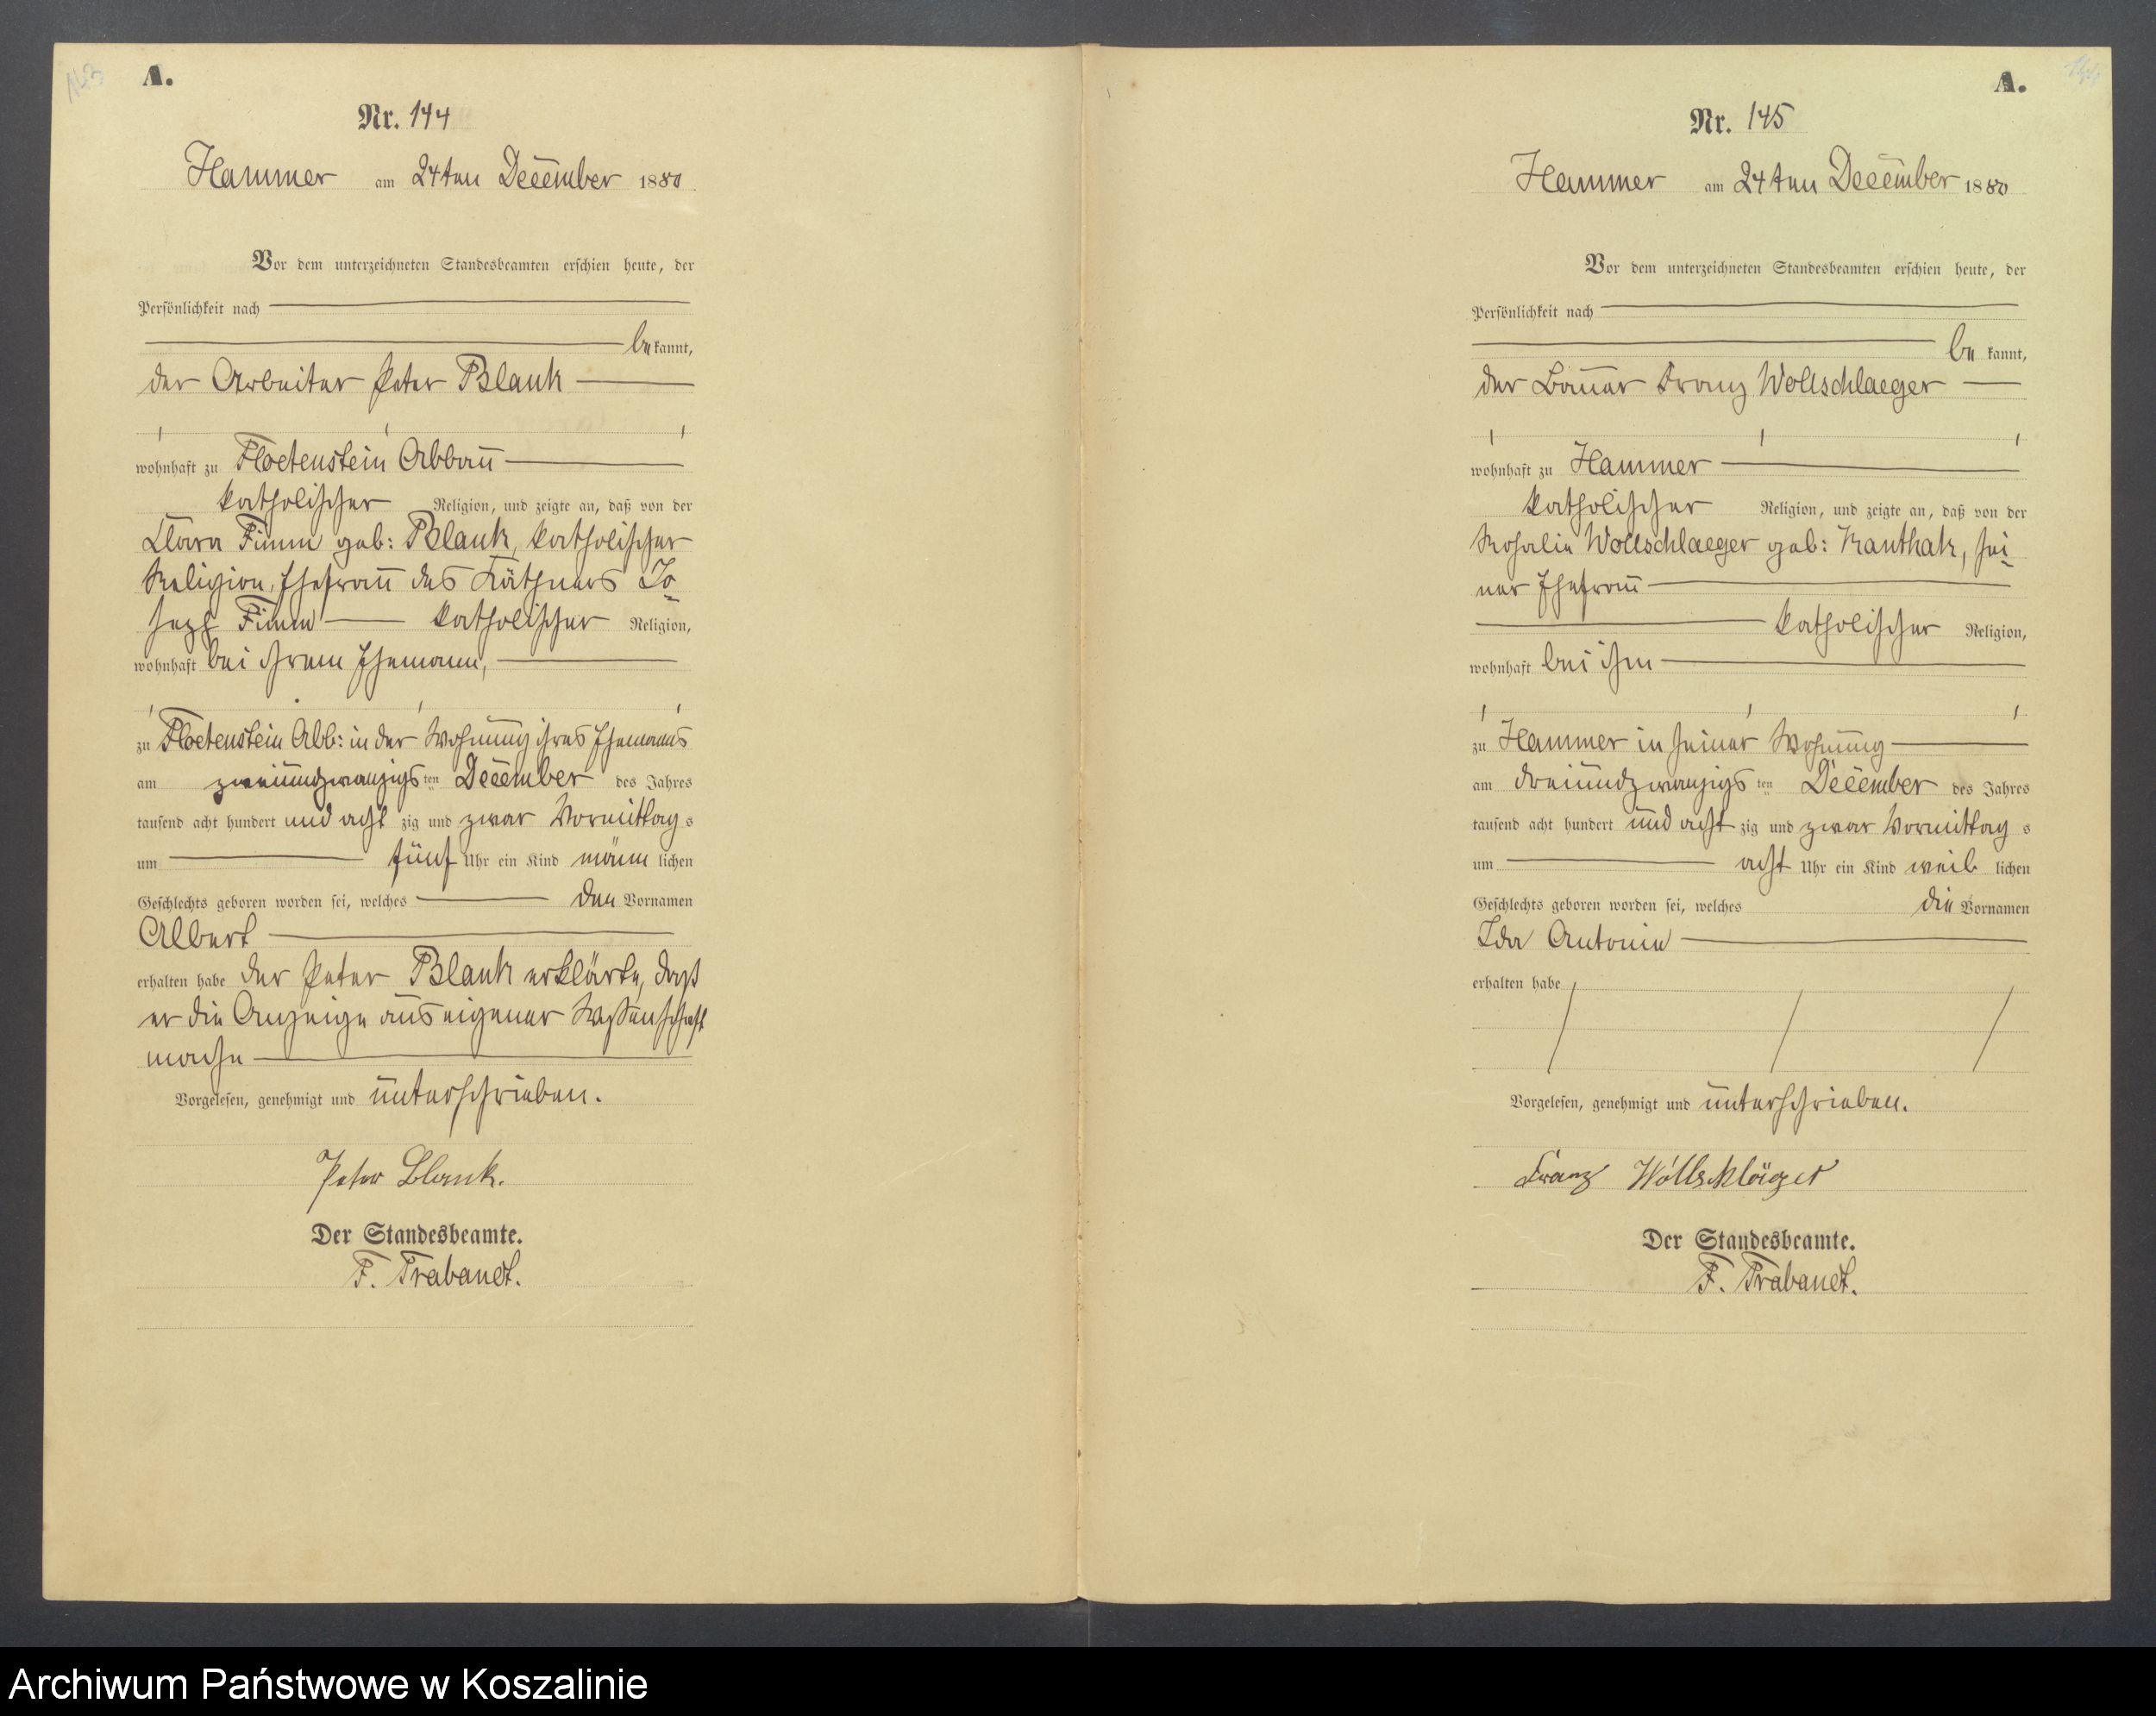 143
A.
Nr. 144
Hammer am 24ten December 1880
Vor dem unterzeichneten Standesbeamten erschien heute, der
Persönlichkeit nach
bekannt,
der Arbeiter Peter Blank
wohnhaft zu Floetenstein Abbau
katholischer Religion, und zeigte an, daß von der
Clara Fimm geb: Blank, katholischer
Religion, Ehefrau des Käthners Jo-
seph Fimm katholischer Religion,
wohnhaft bei ihrem Ehemann,
zu Floetenstein Abb: in der Wohnung ihres Ehemanns
am zweiundzwanzigsten December des Jahres
tausend acht hundert und achtzig und zwar Vormittags
um fünf Uhr ein Kind männlichen
Geschlechts geboren worden sei, welches den Vornamen
Albert
erhalten habe der Peter Blank erklärte, daß
er die Anzeige aus eigener Wissenschaft
mache
Vorgelesen, genehmigt und unterschrieben.
Peter Blank.
Der Standesbeamte.
F. Trabandt.
A.
Nr. 145
Hammer am 24ten December 1880
Vor dem unterzeichneten Standesbeamten erschien heute, der
Persönlichkeit nach
be kannt,
der Bauer Franz Wollschlaeger
wohnhaft zu Hammer
katholischer Religion, und zeigte an, daß von der
Rosalie Wollschlaeger geb: Kanthak, sei-
ner Ehefrau
katholischer Religion,
wohnhaft bei ihm
zu Hammer in seiner Wohnung
am dreiundzwanzigsten December des Jahres
tausend acht hundert und achtzig und zwar Vormittags
um acht Uhr ein Kind weiblichen
Geschlechts geboren worden sei, welches die Vornamen
Ida Antonie
erhalten habe
Vorgelesen, genehmigt und unterschrieben.
Franz Wollschläger
Der Standesbeamte.
F. Trabandt.
Archiwum Państwowe w Koszalinie